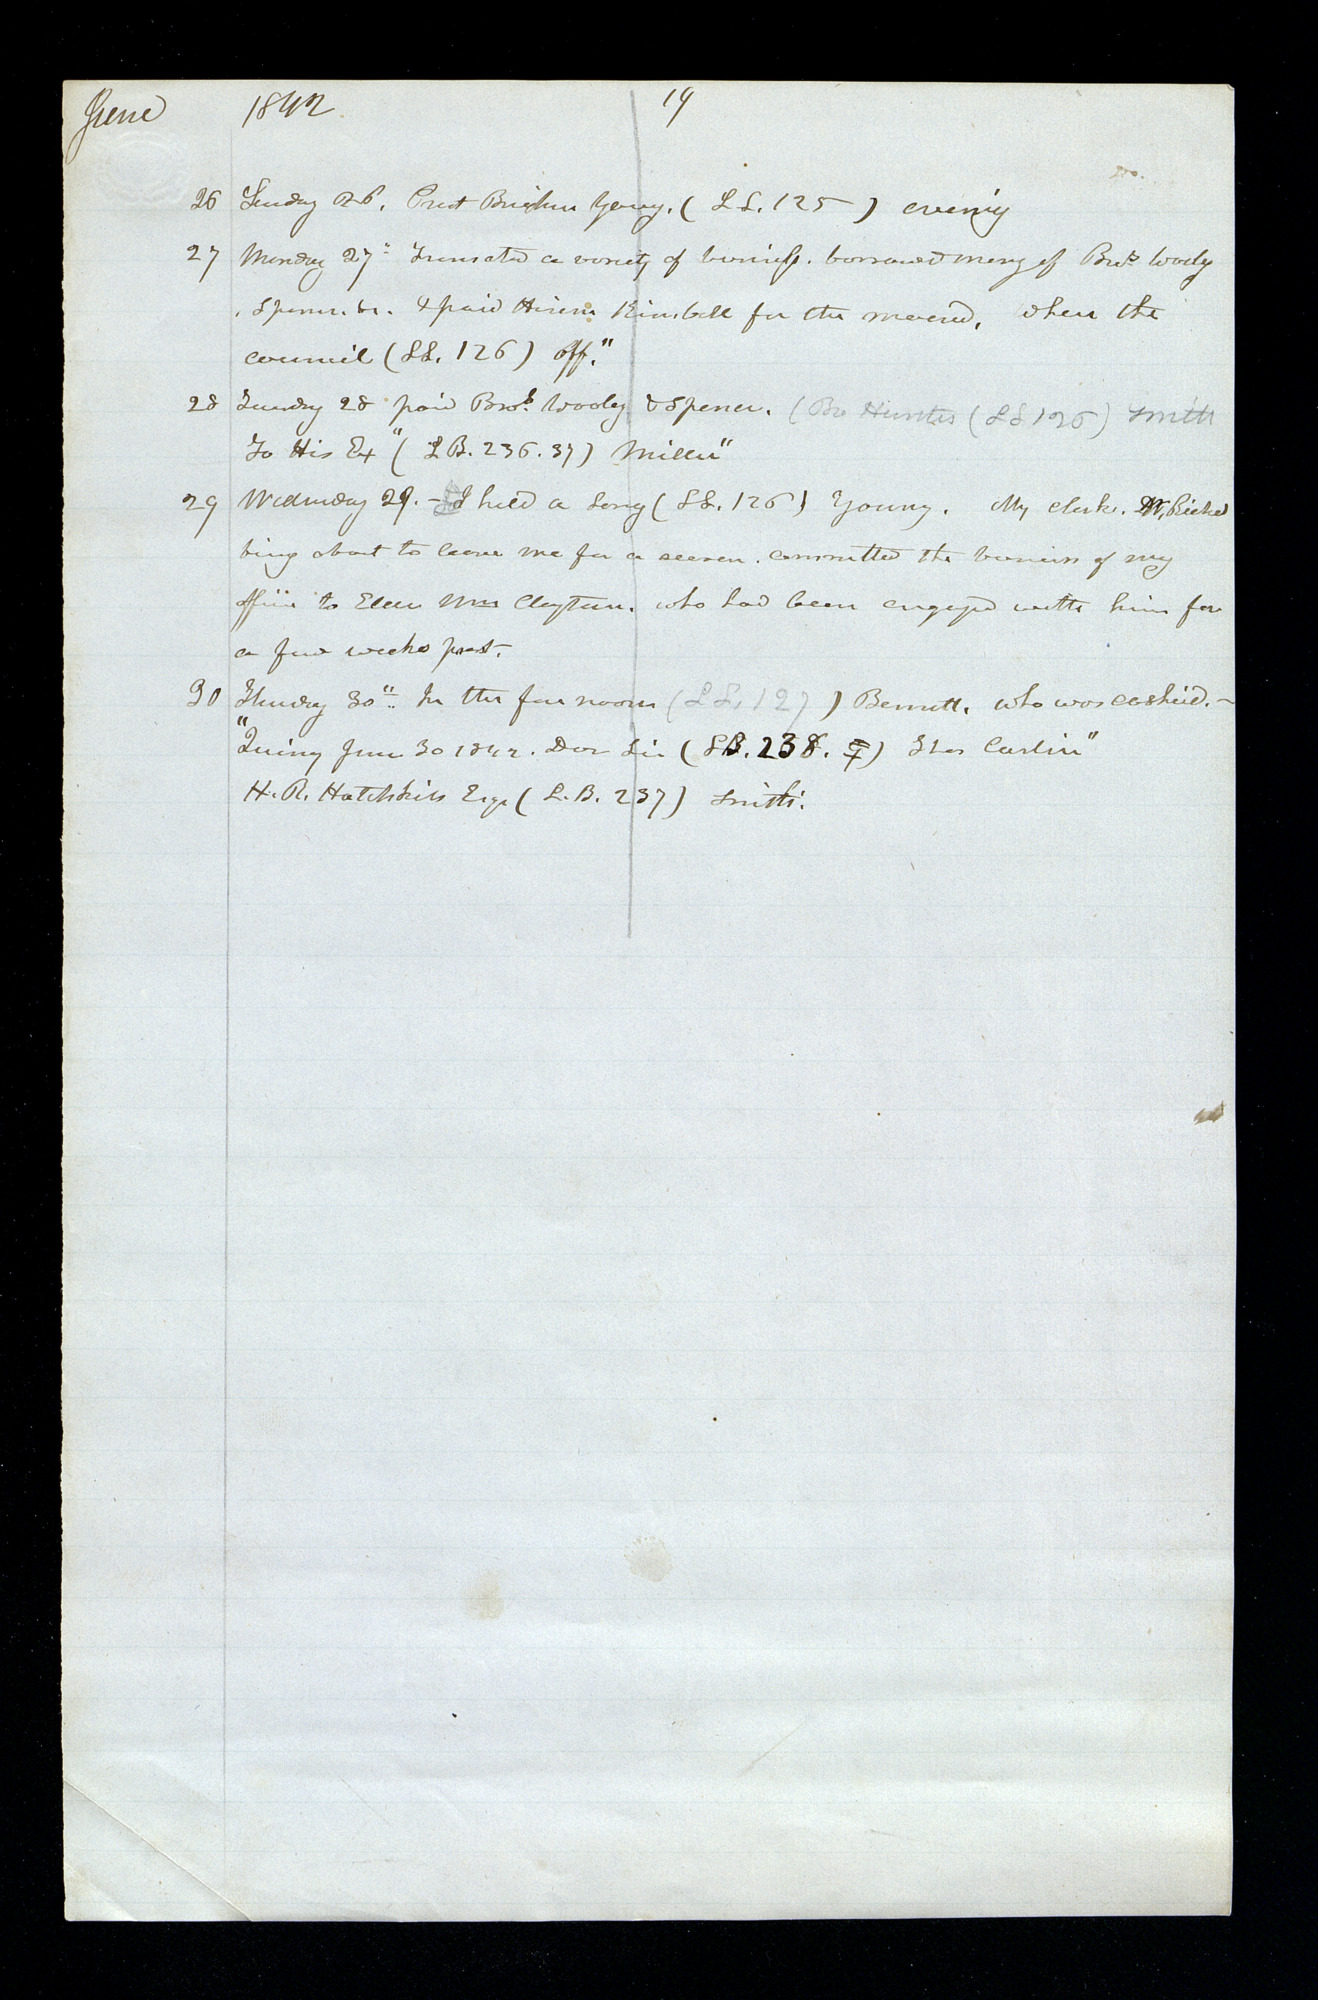 June 1842 19
26 Sunday 26. Prest Brigham Young. ( L S. 125 ) evening
27 Monday 27" Transacted a variety of business. borrowed money of Bros Wooley
, Spencer. &c. & paid Hiram Kimball for the mound, when the
council ( L S. 126 ) off."
28 Tuesday 28 paid Bros. Wooley & Spencer. ( Bro Hunter ( L S 126 ) Smith
To His Ex "( L B. 236. 37 ) Miller"
29 Wednesday 29. – I held a long ( L S. 126 ) Young. My clerk. W, Richds
being about to leave me for a season. committed the business of my
office to Elder Wm Clayton. who had been engaged with him for
a few weeks past.
30 Thursday 30" In the fore noon ( L S. 127 ) Bennett. who was cashier'd. –
"Quincy June 30 1842. Dear Sir ( L B. 238. ) Thos Carlin"
H. R. Hotchkiss Esqr ( L. B. 237 ) Smith.